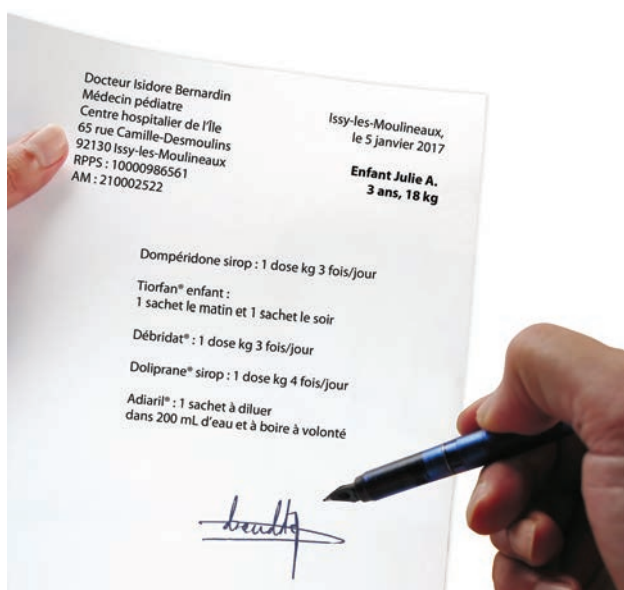 Docteur Isidore Bernardin
Médecin pédiatre
Centre hospitalier de l'Île
65 rue Camille-Desmoulins
92130 Issy-les-Moulineaux
RPPS : 10000986561
AM : 210002522
Issy-les-Moulineaux,
le 5 janvier 2017
Enfant Julie A.
3 ans, 18 kg
Dompéridone sirop : 1 dose kg 3 fois/jour
Tiorfan® enfant :
1 sachet le matin et 1 sachet le soir
Débridat® : 1 dose kg 3 fois/jour
Doliprane® sirop : 1 dose kg 4 fois/jour
Adiaril® : 1 sachet à diluer
dans 200 mL d'eau et à boire à volonté